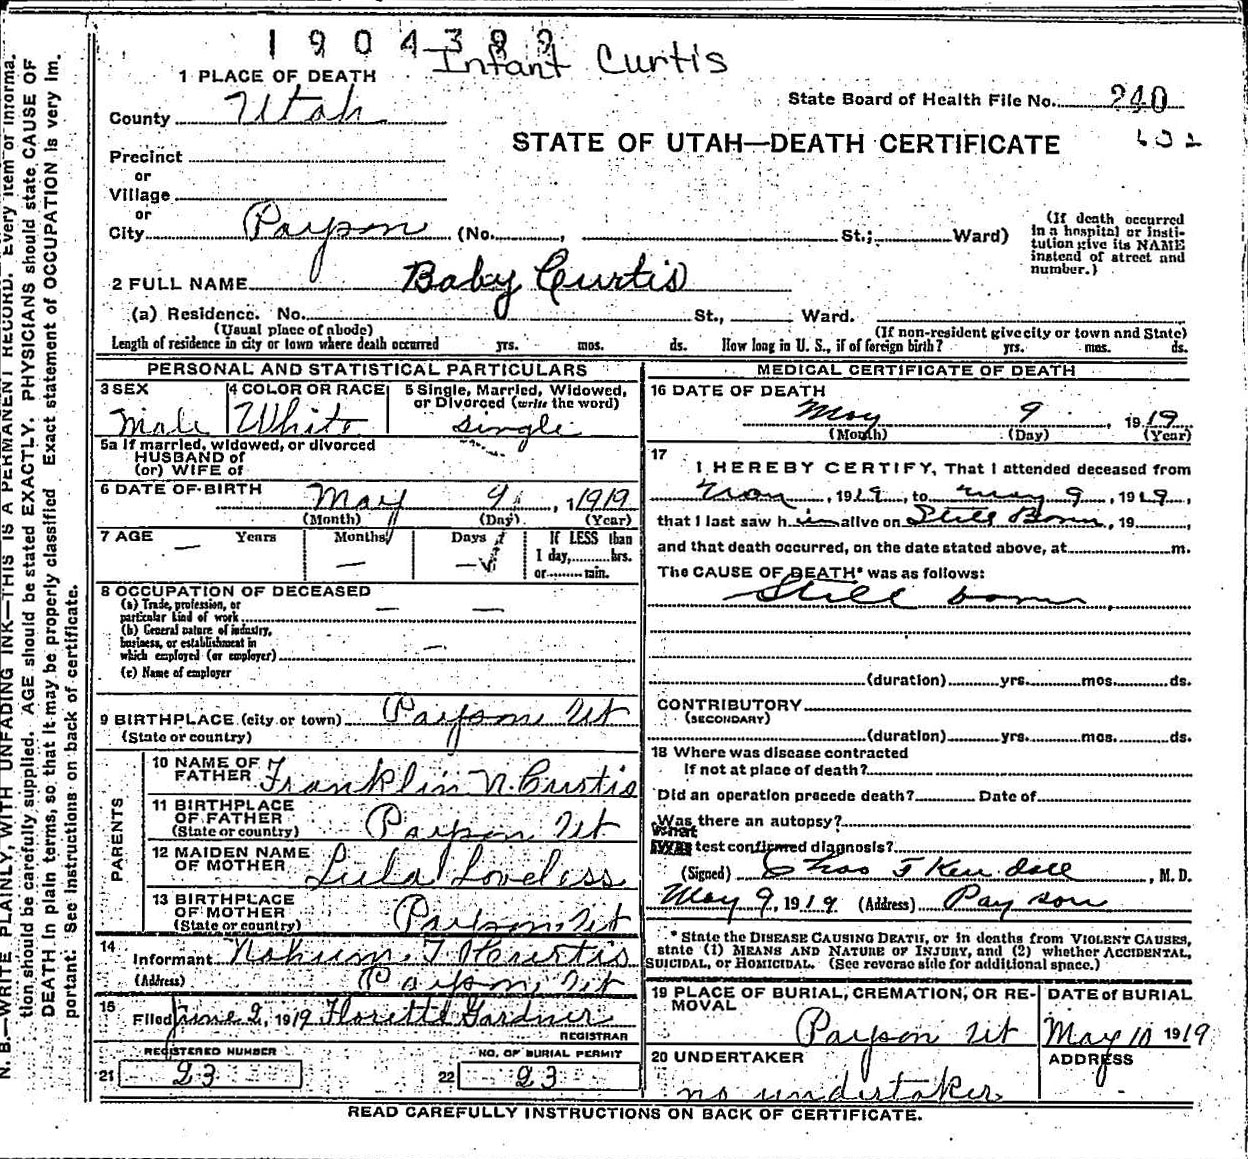 1904399
Infant Curtis
1 PLACE OF DEATH
State Board of Health File No. 240
County Utah
STATE OF UTAH—DEATH CERTIFICATE
632
Precinct
or
Village
or
City Payson (No. , St.; Ward)
(If death occurred in a hospital or institution give its NAME instead of street and number.)
2 FULL NAME Baby Curtis
(a) Residence. No. St., Ward.
(Usual place of abode) (If non-resident give city or town and State)
Length of residence in city or town where death occurred yrs. mos. ds. How long in U. S., if of foreign birth? yrs. mos. ds.
PERSONAL AND STATISTICAL PARTICULARS
3 SEX 4 COLOR OR RACE 5 Single, Married, Widowed, or Divorced (write the word)
Male White Single
5a If married, widowed, or divorced
HUSBAND of
(or) WIFE of
6 DATE OF BIRTH May 9, 1919
(Month) (Day) (Year)
7 AGE Years Months Days If LESS than
— — — 1 day, hrs.
or min.
8 OCCUPATION OF DECEASED
(a) Trade, profession, or
particular kind of work — —
(b) General nature of industry,
business, or establishment in
which employed (or employer) —
(c) Name of employer
9 BIRTHPLACE (city or town) Payson, Ut
(State or country)
PARENTS
10 NAME OF FATHER Franklin N. Curtis
11 BIRTHPLACE OF FATHER Payson Ut
(State or country)
12 MAIDEN NAME OF MOTHER Lula Loveless
13 BIRTHPLACE OF MOTHER Payson, Ut
(State or country)
14
Informant T Curtis
(Address) Payson, Ut
15
Filed June 2, 1919 Florette Gardner
REGISTRAR
REGISTERED NUMBER NO. OF BURIAL PERMIT
21 23 22 23
MEDICAL CERTIFICATE OF DEATH
16 DATE OF DEATH
May 9, 1919
(Month) (Day) (Year)
17
I HEREBY CERTIFY, That I attended deceased from
May , 1919, to May 9, 1919,
that I last saw him alive on Still Born, 19 ,
and that death occurred, on the date stated above, at m.
The CAUSE OF DEATH* was as follows:
Still born
(duration) yrs. mos. ds.
CONTRIBUTORY
(SECONDARY)
(duration) yrs. mos. ds.
18 Where was disease contracted
If not at place of death?
Did an operation precede death? Date of
Was there an autopsy?
What
test confirmed diagnosis?
(Signed) Chas F Kendall, M. D.
May 9, 1919 (Address) Payson
* State the DISEASE CAUSING DEATH, or in deaths from VIOLENT CAUSES,
state (1) MEANS AND NATURE OF INJURY, and (2) whether ACCIDENTAL,
SUICIDAL, or HOMICIDAL. (See reverse side for additional space.)
19 PLACE OF BURIAL, CREMATION, OR REMOVAL DATE of BURIAL
Payson Ut May 10 1919
20 UNDERTAKER ADDRESS
no undertaker.
READ CAREFULLY INSTRUCTIONS ON BACK OF CERTIFICATE.
N. B.—WRITE PLAINLY, WITH UNFADING INK—THIS IS A PERMANENT RECORD. Every item of informa-
tion should be carefully supplied. AGE should be stated EXACTLY. PHYSICIANS should state CAUSE OF
DEATH in plain terms, so that it may be properly classified. Exact statement of OCCUPATION is very im-
portant. See instructions on back of certificate.